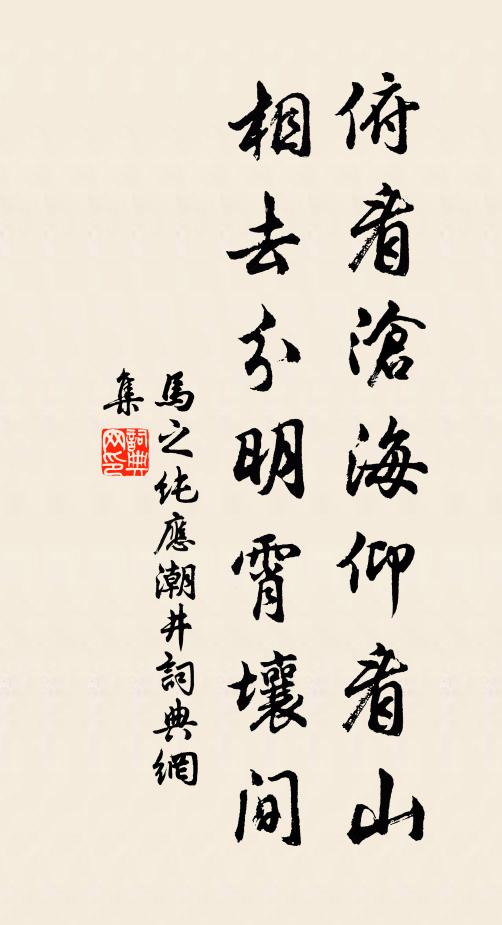 俯看滄海仰看山
相去分明霄壤間
馬之純應潮井詞典網
集
詞典
网印